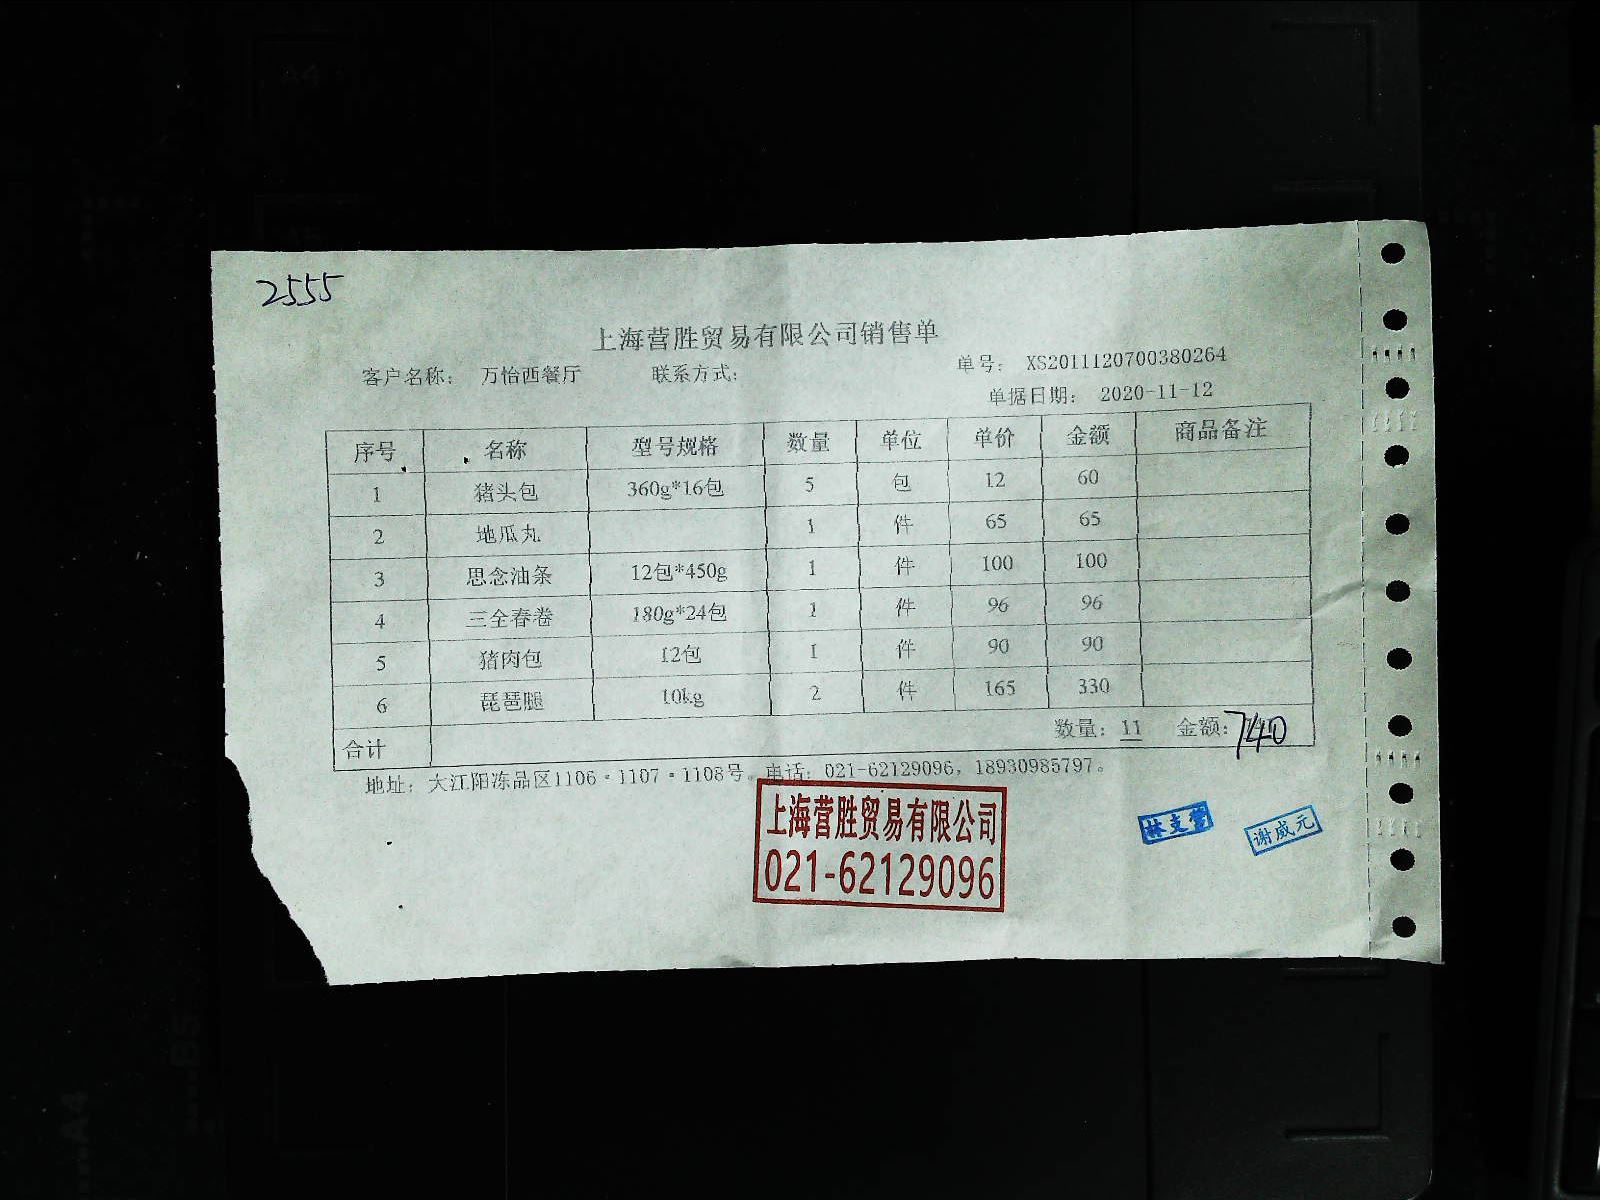 2555
上海营胜贸易有限公司销售单
客户名称： 万怡西餐厅 联系方式： 单号： XS2011120700380264
单据日期： 2020-11-12
序号 名称 型号规格 数量 单位 单价 金额 商品备注
1 猪头包 360g*16包 5 包 12 60
2 地瓜丸 1 件 65 65
3 思念油条 12包*450g 1 件 100 100
4 三全春卷 180g*24包 1 件 96 96
5 猪肉包 12包 1 件 90 90
6 琵琶腿 10kg 2 件 165 330
合计 数量：11 金额：740
地址：大江阳冻品区1106·1107·1108号。电话：021-62129096，18930985797。
上海营胜贸易有限公司
021-62129096
谢威元
A4
B5
A4